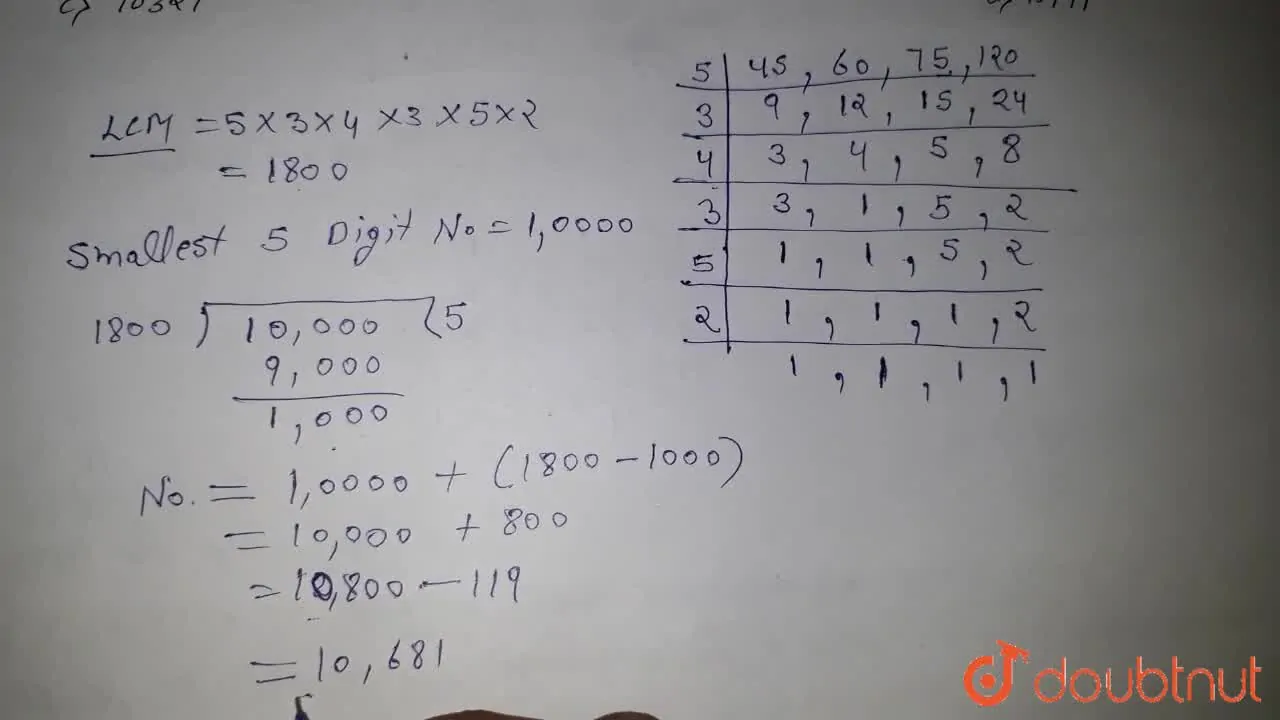 c) 10321
LCM = 5 X 3 X 4 X 3 X 5 X 2
= 1800
Smallest 5 Digit No = 1,0000
1800 ) 10,000 ( 5
9,000
1,000
No. = 1,0000 + (1800 - 1000)
= 10,000 + 800
= 10,800 - 119
= 10,681
5 | 45, 60, 75, 120
3 | 9, 12, 15, 24
4 | 3, 4, 5, 8
3 | 3, 1, 5, 2
5 | 1, 1, 5, 2
2 | 1, 1, 1, 2
1, 1, 1, 1
doubtnut